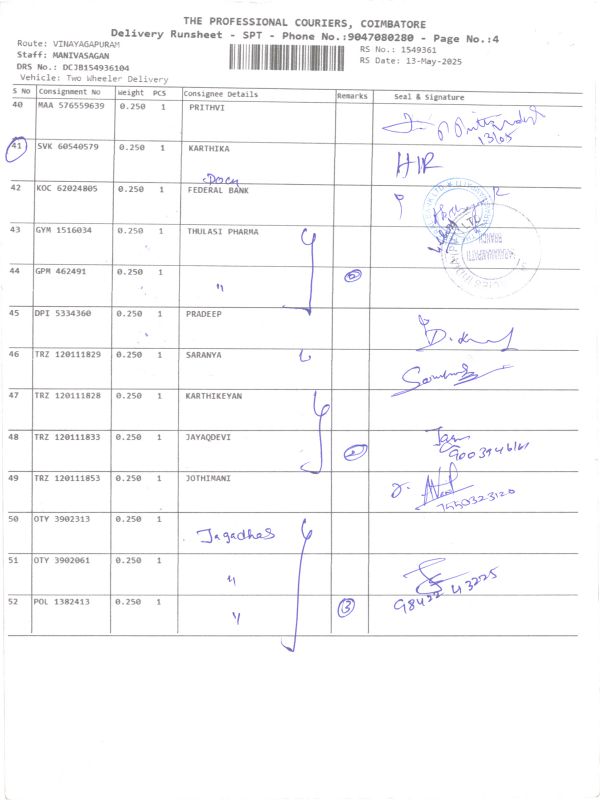 THE PROFESSIONAL COURIERS, COIMBATORE
Delivery Runsheet - SPT - Phone No.:9047080280 - Page No.:4
Route: VINAYAGAPURAM
Staff: MANIVASAGAN
DRS No.: DCJB154936104
Vehicle: Two Wheeler Delivery
RS No.: 1549361
RS Date: 13-May-2025
S No Consignment No Weight PCS Consignee Details Remarks Seal & Signature
40 MAA 576559639 0.250 1 PRITHVI
13/05
41 SVK 60540579 0.250 1 KARTHIKA HIR
Docu
42 KOC 62024805 0.250 1 FEDERAL BANK
43 GYM 1516034 0.250 1 THULASI PHARMA
44 GPM 462491 0.250 1 " 2
45 DPI 5334360 0.250 1 PRADEEP
46 TRZ 120111829 0.250 1 SARANYA
47 TRZ 120111828 0.250 1 KARTHIKEYAN
48 TRZ 120111833 0.250 1 JAYAQDEVI 2
9003946161
49 TRZ 120111853 0.250 1 JOTHIMANI
7550323120
50 OTY 3902313 0.250 1 Jagadhes
51 OTY 3902061 0.250 1 "
52 POL 1382413 0.250 1 " 3
98422 43225